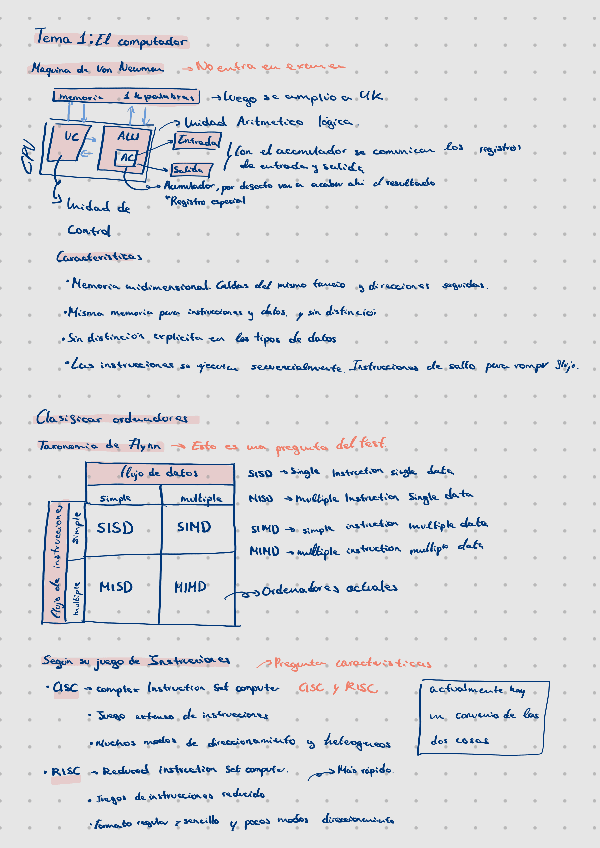 Tema 1: El computador
Maquina de Von Newman → No entra en examen
memoria 1 k palabras → luego se amplio a 4K
CPU
UC
ALU
AC
→ Unidad Aritmetico lógica
Entrada
Salida
Con el acumulador se comunican los registros
de entrada y salida
→ Acumulador, por desecto van a acabar ahi el resultado
*Registro especial
→ Unidad de
Control
Caracteristicas
• Memoria unidimensional. Celdas del mismo tamaño y direcciones seguidas.
• Misma memoria para instrucciones y datos, y sin distinción
• Sin distinción explicita en los tipos de datos
• Las instrucciones se ejecutan secuencialmente. Instrucciones de salto para romper flujo.
Clasificar ordenadores
Taxonomia de Flynn → Esto es una pregunta del test
flujo de datos
simple multiple
flujo de instrucciones
simple
multiple
SISD SIMD
MISD MIMD
SISD → Single Instruction single data
MISD → Multiple Instruction Single data
SIMD → simple instruction multiple data
MIMD → multiple instruction multiple data
→ Ordenadores actuales
Según su juego de Instrucciones → Preguntan caracteristicas
• CISC → complex Instruction Set computer CISC y RISC
• Juego extenso de instrucciones
• Muchos modos de direccionamiento y heterogeneos
• RISC → Reduced instruction Set computer. → Más rápido
• Juegos de instrucciones reducido
• Formato regular y sencillo y pocos modos direccionamiento
actualmente hay
un convenio de las
dos cosas